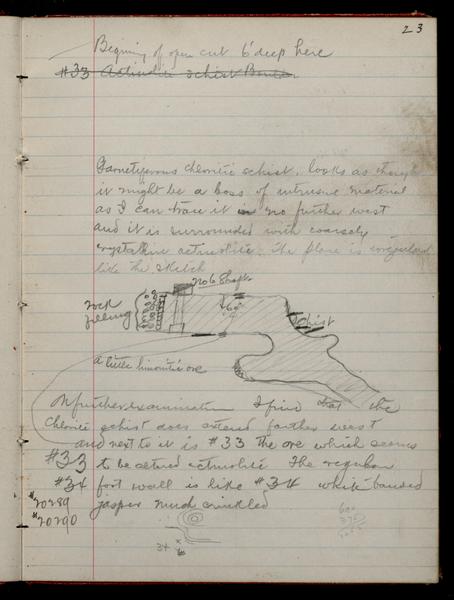 23
Begining of open cut 6' deep here
#33 Actinolitic schist
Garnetiferous chloritic schist. looks as though
it might be a boss of intrusive material
as I can trace it in no further west
and it is surrounded with coarsely
crystalline actinolitic. The plane is
like the sketch
No 6 Shaft
rock
filling
60
Schist
a little limonitic ore
On further examination I find that the
chloritic schist does extend farther west
and next to it is #33 The ore which seems
#33 to be altered actinolitic The regular
#34 foot wall is like #34 white banded
#20289 jasper much crinkled
#20290
34